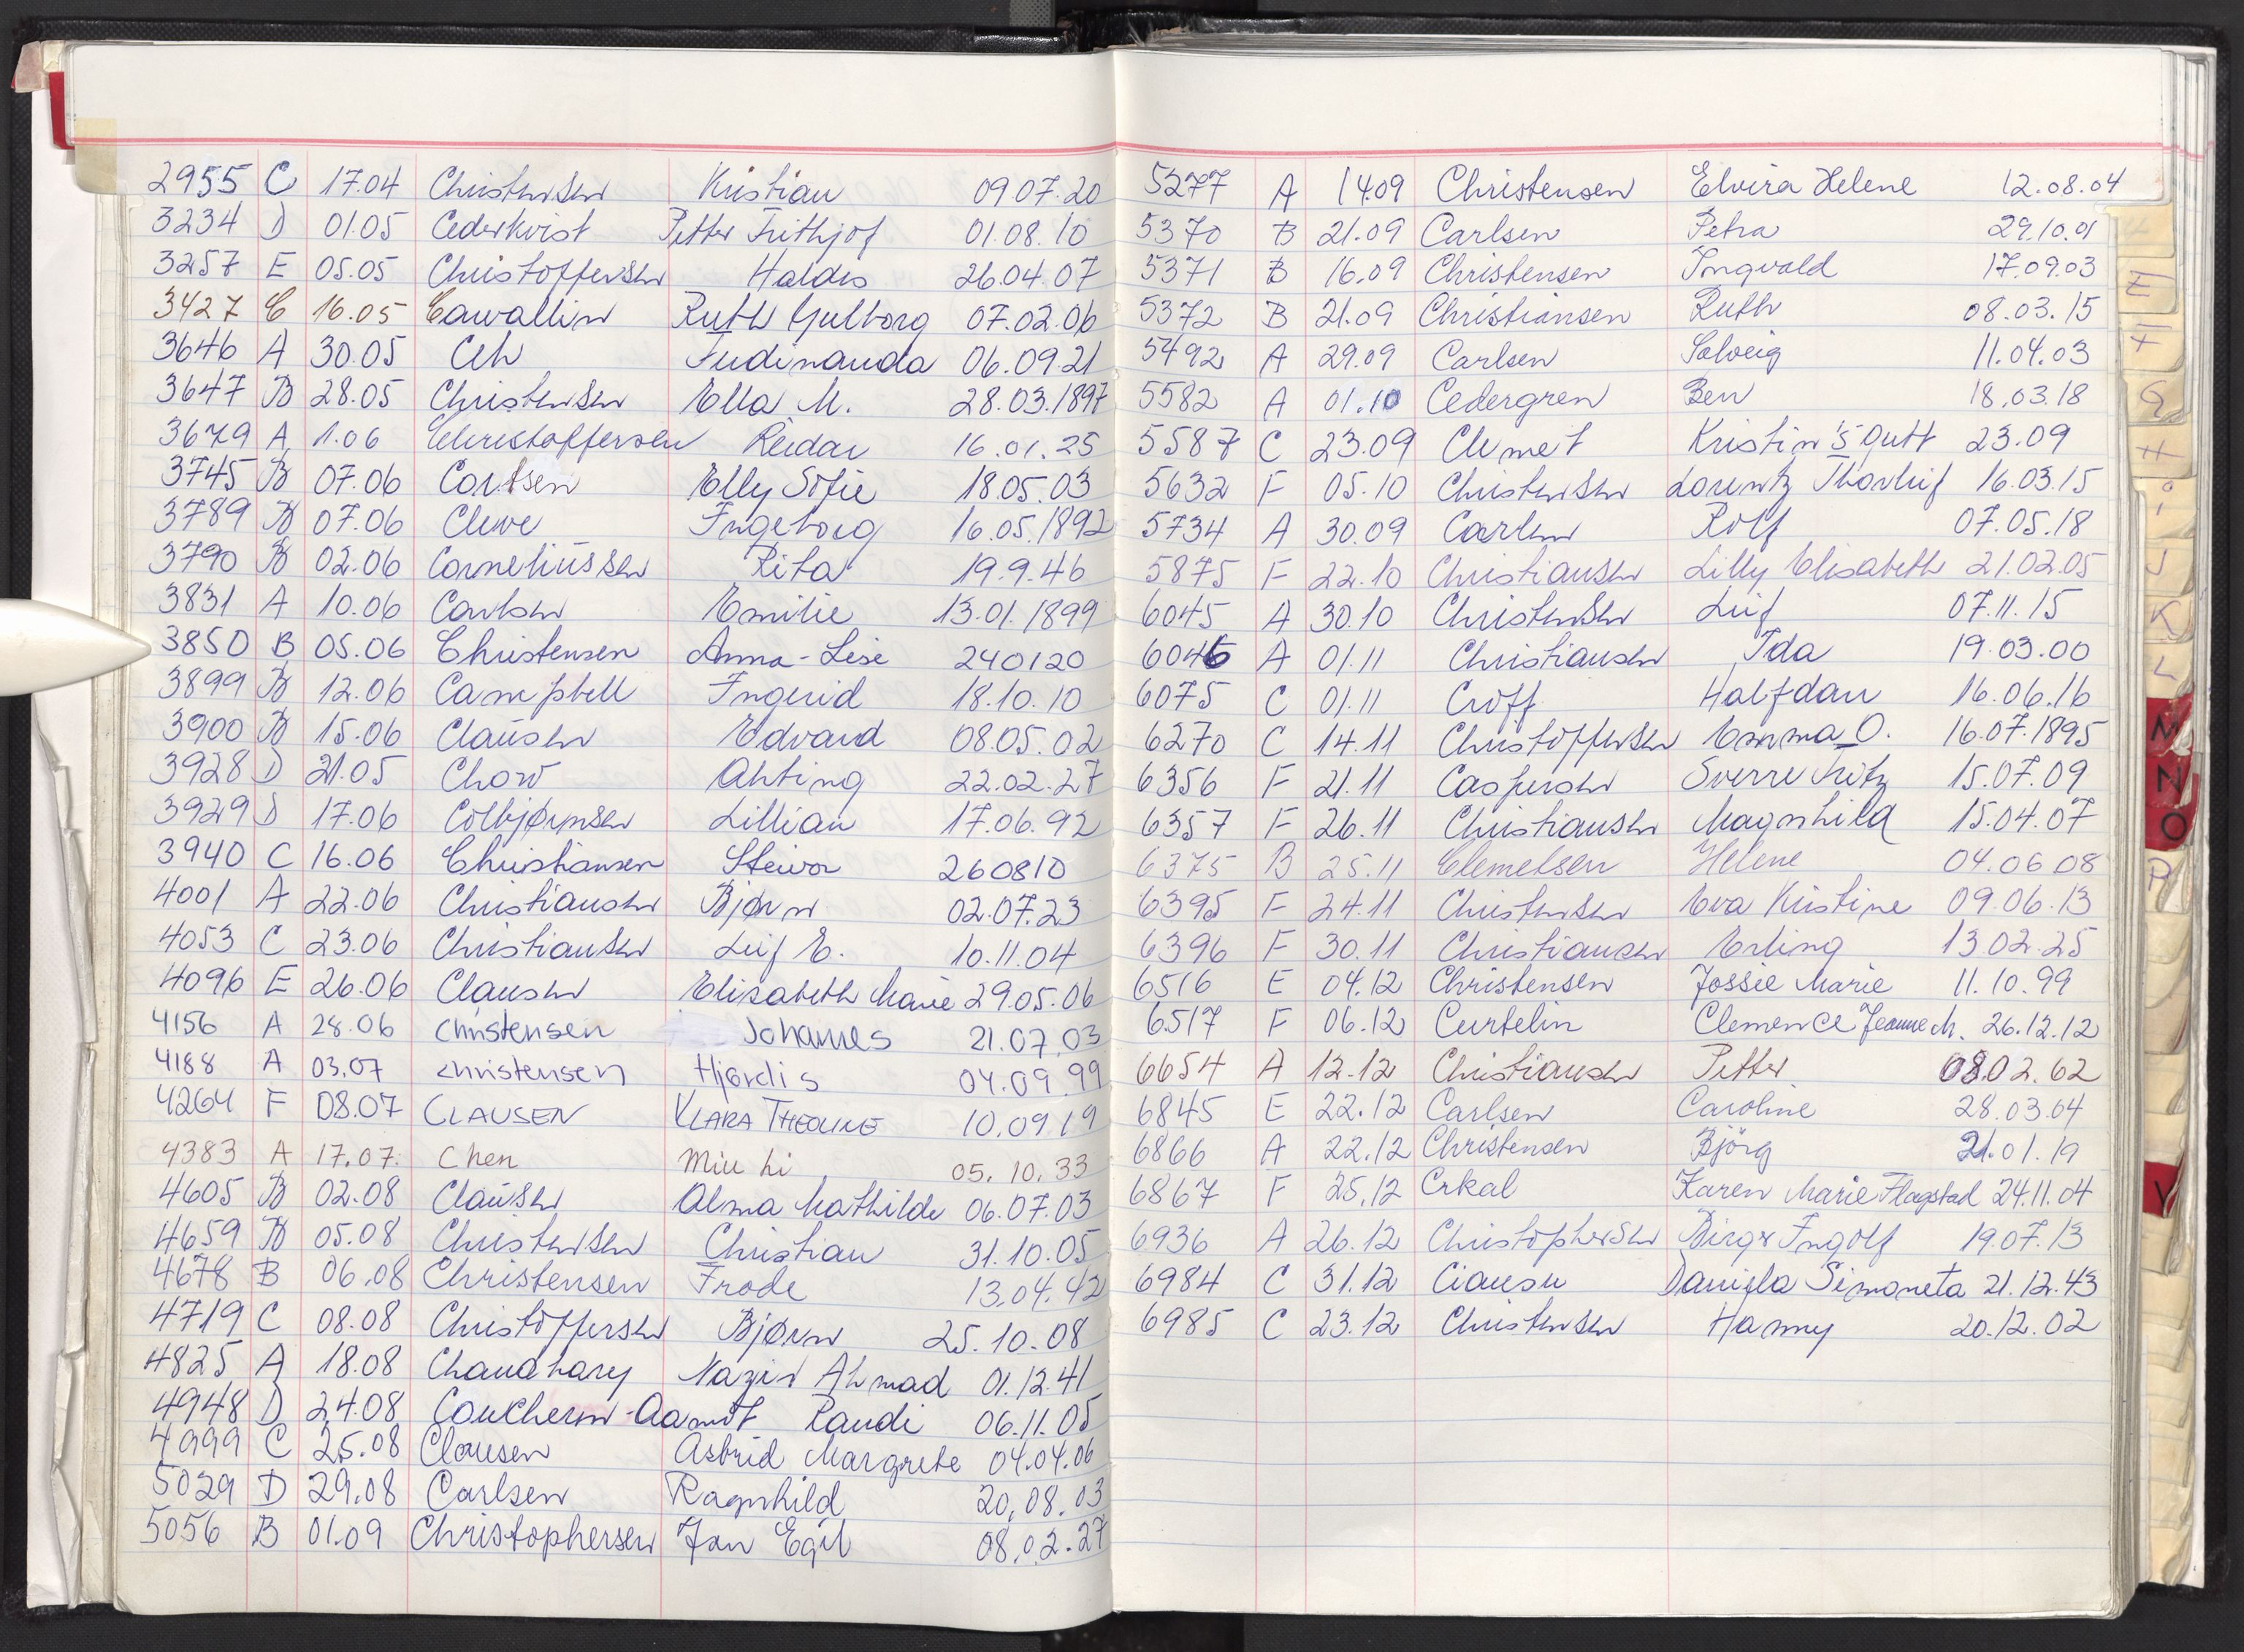 2955 C 17.04 Christensen Kristian 09.07.20
3234 D 01.05 Cederkvist Petter Frithjof 01.08.10
3257 E 05.05 Christoffersen Haldis 26.04.07
3427 C 16.05 Cawallin Ruth Gulborg 07.02.06
3646 A 30.05 Ferdinanda 06.09.21
3647 B 28.05 Christensen Ella M. 28.03.1897
3679 A 1.06 Christoffersen Reidar 16.01.25
3745 B 07.06 Carlsen Elly Sofie 18.05.03
3789 B 07.06 Cleve Ingeborg 16.05.1892
3790 B 02.06 Corneliussen Rita 19.9.46
3831 A 10.06 Carlsen Emilie 13.01.1899
3850 B 05.06 Christensen Anna-Lise 240120
3899 B 12.06 Campbell Ingerid 18.10.10
3900 B 15.06 Clausen Edvard 08.05.02
3928 D 21.05 Chow Ahting 22.02.27
3929 D 17.06 Colbjørnsen Lillian 17.06.92
3940 C 16.06 Christiansen Steivor 260810
4001 A 22.06 Christiansen Bjørn 02.07.23
4053 C 23.06 Christiansen Leif E. 10.11.04
4096 E 26.06 Clausen Elisabeth Marie 29.05.06
4156 A 28.06 Christensen Johannes 21.07.03
4188 A 03.07 Christensen Hjørdis 04.09.99
4264 F 08.07 CLAUSEN KLARA THEOLINE 10.09.19
4383 A 17.07. Chen Miu hi 05.10.33
4605 B 02.08 Clausen Alma Mathilde 06.07.03
4659 B 05.08 Christensen Christian 31.10.05
4678 B 06.08 Christensen Frode 13.04.42
4719 C 08.08 Christoffersen Bjørn 25.10.08
4825 A 18.08 Chaudhary Nazir Ahmad 01.12.41
4948 D 24.08 Coucheron-Aamot Randi 06.11.05
4999 C 25.08 Clausen Astrid Margrete 04.04.06
5029 D 29.08 Carlsen Ragnhild 20.08.03
5056 B 01.09 Christophersen Jan Egil 08.02.27
5277 A 14.09 Christensen Elvira Helene 12.08.04
5370 B 21.09 Carlsen Petra 29.10.01
5371 B 16.09 Christensen Ingvald 17.09.03
5372 B 21.09 Christiansen Ruth 08.03.15
5492 A 29.09 Carlsen Solveig 11.04.03
5582 A 01.10 Cedergren Ben 18.03.18
5587 C 23.09 Clemet Kristin's gutt 23.09
5632 F 05.10 Christensen Lorentz Thorleif 16.03.15
5734 A 30.09 Carlsen Rolf 07.05.18
5875 F 22.10 Christiansen Lilly Elisabeth 21.02.05
6045 A 30.10 Christensen Leif 07.11.15
6046 A 01.11 Christiansen Ida 19.03.00
6075 C 01.11 Croff Halfdan 16.06.16
6270 C 14.11 Christoffersen Emma O. 16.07.1895
6356 F 21.11 Caspersen Sverre Fritz 15.07.09
6357 F 26.11 Christiansen Magnhild 15.04.07
6375 B 25.11 Clemetsen Helene 04.06 08
6395 F 24.11 Christensen Eva Kristine 09.06.13
6396 F 30.11 Christiansen Erling 13.02.25
6516 E 04.12 Christensen Jossie Marie 11.10.99
6517 F 06.12 Curtelin Clemence Jeanne M. 26.12.12
6654 A 12.12 Christiansen Petter 08.02.62
6845 E 22.12 Carlsen Caroline 28.03.04
6866 A 22.12 Christensen Bjørg 21.01.19
6867 F 25.12 Crkal Karen Marie Flagstad 24.11.04
6936 A 26.12 Christophersen Birger Ingolf 19.07.13
6984 C 31.12 Ciausu Daniela Simoneta 21.12.43
6985 C 23.12 Christensen Hanny 20.12.02
E
F
G
H
i
J
K
L
M
N
O
P
V